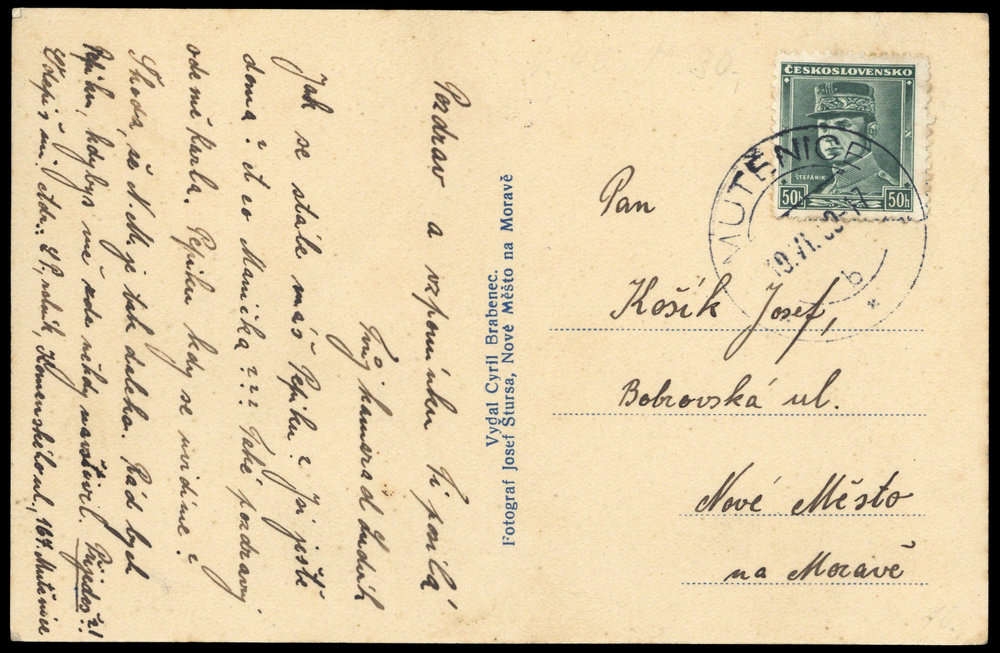 Pozdrav a vzpomínku Ti posílá
Tvůj kamarád Ludvík
Jak se stále máš Pepíku? Jsi ještě
doma? A co Mařnka??? Také pozdravuj
ode mě Karla. Pepíku kdy se uvidíme?
Škoda, že N. M. je tak daleko. Rád bych
Pepíku, kdybys mě zde někdy navštívil. Přijedeš?!
Odepiš mi. rolník, Komenského ul, 167. Mutěnice
Vydal Cyril Brabenec.
Fotograf Josef Štursa, Nové Město na Moravě
ČESKOSLOVENSKO
ŠTEFÁNIK
50h 50h
MUTĚNICE
19.VI.39-17
b
*
Pan
Košík Josef,
Bobrovská ul.
Nové Město
na Moravě